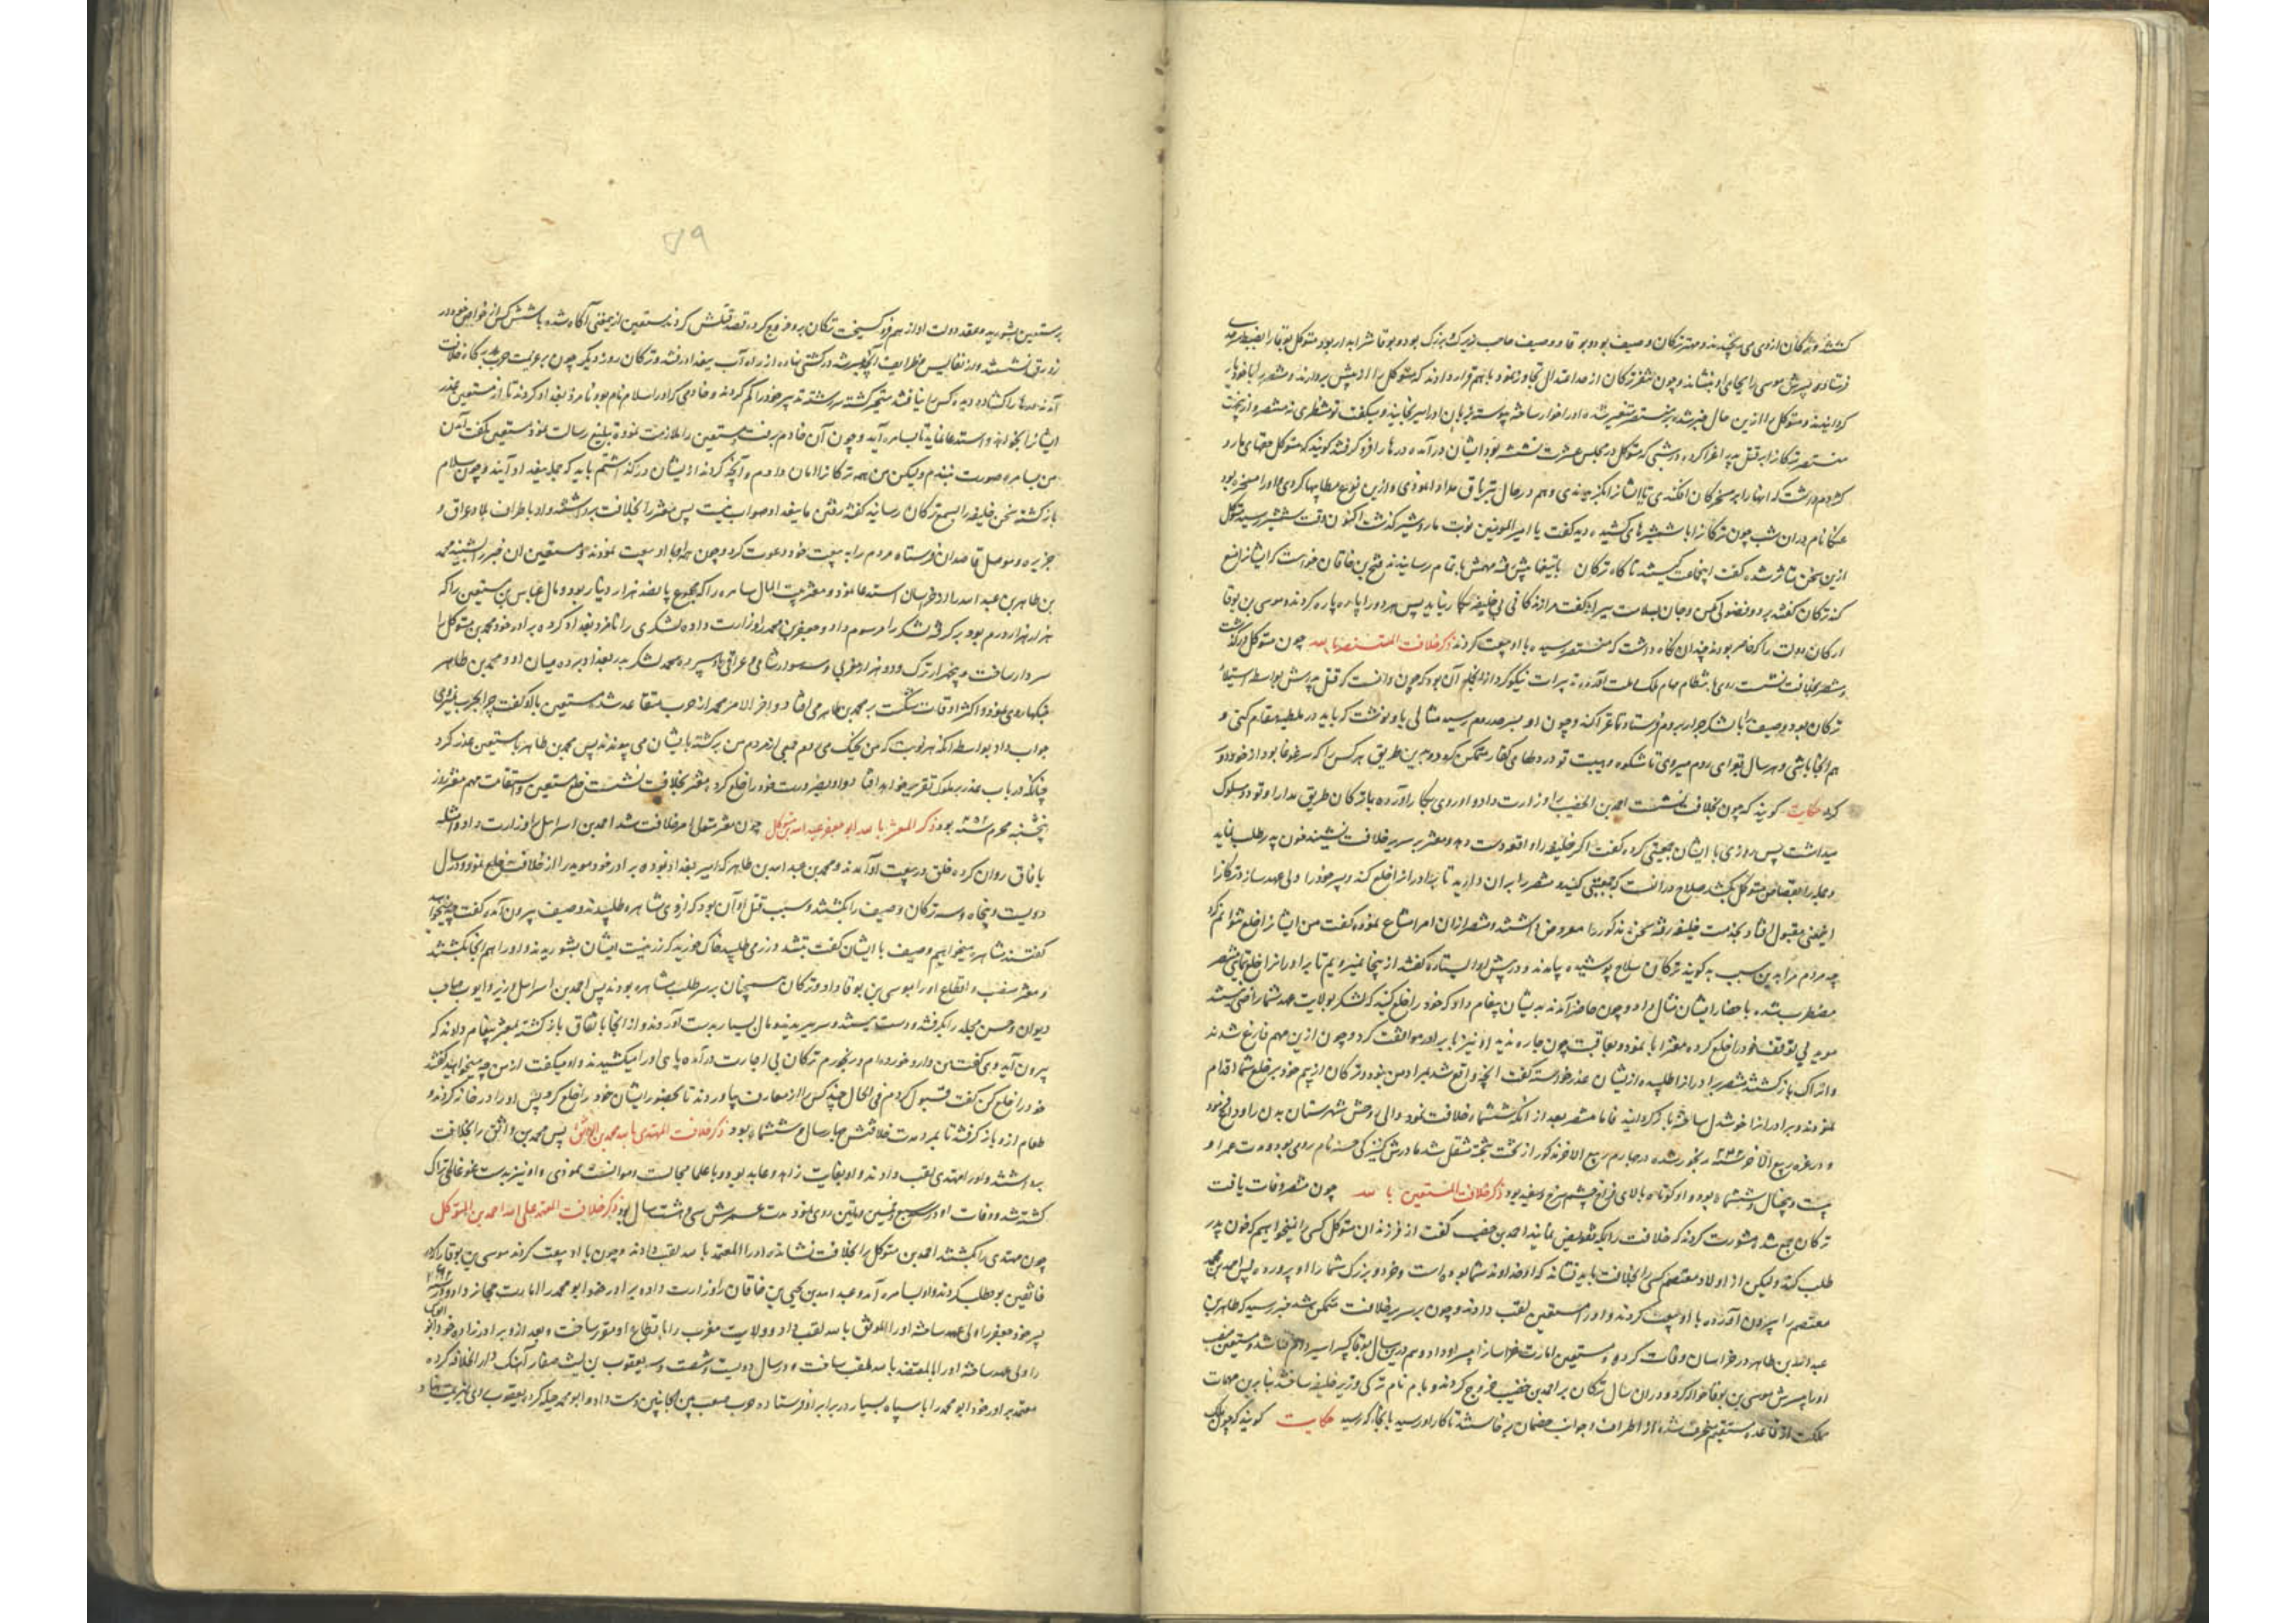 کشتند و ترکان ازوی می رنجیدند و مهتر ترکان وصیف بود و بوقا و وصیف صاحب بزرگ بود و بوقا شرابدار بود و متوکل بوقا را
فرستاد و پسرش موسی را بجای او بنشاند و چون تنفر ترکان از حد اعتدال تجاوز نمود با هم قرار دادند که متوکل را از پیش بردارند و منتصر را
کردانیدند و متوکل ازین حال خبر شد بر منتصر متغیر شده او را خوار ساخته پیوسته بزبان او را میرنجانید و میگفت تو منتظری نه منتصر و
منتصر ترکانرا بر قتل پدر اغرا کرد و در شبی که متوکل در مجلس عشرت نشسته بود ایشان درآمده درها را فرو گرفتند گویند که متوکل حقهای مار و
کژدم داشت که آنها را بر مسخرکان افکندی تا ایشانرا و هم در حال بتریاق مداوا نمودی و ازین نوع مطایبها کردی و او را مسخره بود
نام در آن شب چون ترکانرا با شمشیرهای کشیده دید گفت یا امیر المومنین نوبت مار و گذشت اکنون وقت شمشیر رسید متوکل
ازین سخن متاثر شده گفت اینجماعت کیستند ناکاه ترکان با تیغها پیش رفته مهمش باتمام رسانیدند فتح بن خاقان خواست که ایشانرا منع
کند ترکان گفتند برو و فضولی مکن و جان بسلامت بیر او گفت مرا زندگانی بی خلیفه بکار نیاید پس هر دو را پاره پاره کردند و موسی بن بوقا
ارکان دولت را که حاضر بودند چندان نگاه داشت که منتصر رسیده با او بیعت کردند ذکر خلافت المنتصر بالله چون متوکل درگذشت
منتصر بخلافت نشست روی بانتظام مهام ملک و ملت آورده تدبیرات نیکو کرد از انجمله آن بود که چون دانست که قتل پدرش بواسطه استیلاء
ترکان بود وصیف را با لشکر جرار بروم فرستاد تا غزا کند و چون او بسرحد روم رسید مثالی باو نوشت که باید در ملطیه مقام کنی و
هم آنجا باشی و هر سال بغزای روم میروی تا شکوه و هیبت تو در دلهای کفار متمکن گردد و بدین طریق هر کس را که سر غوغا بود از خود دور
کرد حکایت گویند که چون بخلافت بنشست احمد بن الخصیب را وزارت داد و او روی بکار آورده با ترکان طریق مدارا و تودد سلوک
میداشت پس روزی با ایشان جمعیتی کرده گفت اگر خلیفه را واقعه دست دهد و معتز بر سریر خلافت نشیند خون پدر طلب نماید
و جمله را بقصاص متوکل بکشد صلاح در آنست که جمعیتی کنید و منتصر را بران دارید تا برادرانرا خلع کند و پسر خود را ولی عهد سازد ترکانرا
اینمعنی مقبول افتاد بخدمت خلیفه رفته سخن مذکور را معروض داشتند و منتصر از ان امر امتناع نموده گفت من ایشانرا خلع نتوانم کرد
چه مردم مرا بدین سبب بد گویند ترکان سلاح پوشیده پیامدند و در پیش او ایستاده گفتند از اینجا نمیرویم تا برادرانرا خلع نمایی منتصر
مضطرب شده باحضار ایشان مثال داد و چون حاضر آمدند بدیشان پیغام داد که خود را خلع کنید که لشکر بولایت عهد شما راضی نیستند
موید بی توقف خود را خلع کرده معتز ابا نمود و بعاقبت چون چاره ندید او نیز با برادر موافقت کرد و چون ازین مهم فارغ شدند
و اتراک بازگشتند منتصر برادرانرا طلبیده از ایشان عذر خواسته گفت آنچه واقع شد بمراد من نبود و ترکان از بیم خود بر خلع شما اقدام
نمودند و برادرانرا خوشدل ساخته بازگردانید فاما منتصر بعد از آنکه ششماه خلافت نمود والی وحش شهرستان بدن را وداع نمود
و در غره ربیع الاخر سنه ۲۴۸ رنجور شده در چهارم ربیع الاخر مذکور از تخت بتخته منتقل شد مادرش کنیزکی حبشه نام رومی بود و مدت عمر او
بیست و پنجسال و ششماه بود و او کوتاه بالای فراخ چشم سرخ و سفید بود ذکر خلافت المستعین بالله چون منتصر وفات یافت
ترکان جمع شده مشورت کردند که خلافت را بکه تفویض نمایند احمد بن خصیب گفت از فرزندان متوکل کسی را نمیخواهیم که خون پدر
طلب کند ولیکن از اولاد معتصم کسی را بخلافت باید نشاند که او خداوند شما بوده است و خرد و بزرگ شما را او پرورده پس احمد بن محمد
معتصم را بیرون آورده با او بیعت کردند و او را مستعین لقب دادند و چون بر سریر خلافت متمکن شد خبر رسید که طاهر بن
عبدالله بن طاهر در خراسان وفات کرده و مستعین امارت خراسانرا به پسر او داد و هم درین سال بوقا کبیر امیر وفات شد و مستعین منصب
او را به پسرش موسی بن بوقا حواله کرد و در ان سال ترکان بر احمد بن خصیب خروج کردند و نام ترکی وزیر خلیفه ساختند بنابرین مهمات
مملکت از قاعده مستقیم منحرف شده از اطراف و جوانب خصمان برخاستند تا کار او رسید بانجا که رسید حکایت گویند که چون
بر مستعین بشوریدند و عقد دولت او از هم فرو گسیخت ترکان برو خروج کرده قصد قتلش کردند مستعین از اینمعنی آگاه شده با شش کس از خواص خود در
زورق نشستند و از نفایس و ظرایف آنچه میسر شد در کشتی نهاده از راه آب ببغداد رفتند و ترکان روز دیگر چون بعزیمت حرب بدرگاه خلافت
آمدند درها را گشاده دیده کس را نیافتند متحیر گشته سررشته تدبیر خود را گم کردند و خادمی که او را سلام نام بود نامزد بغداد کردند تا از مستعین عذر
ایشانرا بخواهد و استدعا نماید تا بسامره آید و چون آن خادم برفت و مستعین را ملازمت نموده تبلیغ رسالت نمود مستعین گفت آمدن
من بسامره صورت نبندم ولیکن من همه ترکانرا امان دادم و آنچه کردند از ایشان درگذاشتم باید که جمله ببغداد آیند و چون سلام
بازگشته سخن خلیفه را بسمع ترکان رسانید گفتند رفتن ما ببغداد صواب نیست پس معتز را بخلافت برداشتند و او باطراف بلاد عراق و
جزیره و موصل قاصدان فرستاده مردم را به بیعت خود دعوت کرد و چون با او بیعت نمودند و مستعین ان خبر را شنید محمد
بن طاهر بن عبدالله را از خراسان استدعا نمود و معتز بیت المال سامره را که مجموع پانصد هزار دینار بود و مال عباس بن مستعین را که
هزار هزار درم بود برگرفته لشکر را مرسوم داد و جعفر بن محمد را وزارت داده لشکری را نامزد بغداد کرده برادر خود محمد بن متوکل را
سردار ساخت و پنجهزار ترک و دو هزار مغربی و سه سوار شامی و عراقی باو سپرده محمد لشکر بدر بغداد برده میان او و محمد بن طاهر
جنگها روی نمود و اکثر اوقات شکست بر محمد بن طاهر می افتاد و اخر الامر محمد از حرب متقاعد شد مستعین با او گفت چرا بحرب نمیروی
جواب داد بواسطه آنکه هر نوبت که من بجنگ می روم جمعی از مردم من برگشته بایشان می پیوندند پس محمد بن طاهر با مستعین غدر کرد
چنانکه در باب غدر ملوک تقریر خواهد افتاد و او بضرورت خود را خلع کرد و معتز بخلافت نشست و خلع مستعین و استقامت مهم معتز روز
پنجشنبه محرم سنه ۲۵۲ بود ذکر المعتز بالله ابو جعفر عبدالله بن متوکل چون معتز متولی امر خلافت شد احمد بن اسراییل را وزارت داد و امثله
بافاق روان کرده خلق در بیعت او آمدند و محمد بن عبدالله بن طاهر که امیر بغداد بود برادر خود موید را از خلافت خلع نمود و در سال
دویست و پنجاه و سه ترکان وصیف را بکشتند و سبب قتل او آن بود که ازوی مشاهره طلبیدند وصیف بیرون آمده گفت چه میخواهید
گفتند مشاهره میخواهیم وصیف با ایشان گفت بتندی و زری طلبید خاک خورید که زر نیست ایشان بشوریدند و او را هم انجا بکشتند
و معتز منصب و اقطاع او را بموسی بن بوقا داد و ترکان همچنان بر سر طلب مشاهره بودند پس احمد بن اسراییل وزیر و ایوب صاحب
دیوان و حسن مخلد را بگرفتند و دست ببستند و سر بریدند و مال بسیار بدست آوردند و از انجا باتفاق بازگشته بمعتز پیغام دادند که
بیرون آید وی گفت من دارو خورده ام و رنجورم ترکان بی اجازت درآمده پای او را میکشیدند و او میگفت از من چه میخواهید گفتند
خود را خلع کن گفت قبول کردم فی الحال چند کس را از معارف بیاوردند تا بحضور ایشان خود را خلع کرد پس او را در خانه کردند و
طعام ازو بازگرفتند تا بمرد مدت خلافتش چهار سال و ششماه بود ذکر خلافت المهتدی بالله محمد بن الواثق پس محمد بن واثق را بخلافت
برداشتند و او را مهتدی لقب دادند و او بغایت زاهد و عابد بود و با علما مجالست و موانست نمودی و او نیز بدست غوغای اتراک
کشته شد و وفات او در سبع و خمسین و ماتین روی نمود مدت عمرش سی و هشت سال بود ذکر خلافت المعتمد علی الله احمد بن المتوکل
چون مهتدی را بکشتند احمد بن متوکل را بخلافت نشاندند او را المعتمد بالله لقب دادند و چون با او بیعت کردند موسی بن بوقا را که در
خانقین بود طلب کردند و او بسامره آمد و عبدالله بن یحیی بن خاقان را وزارت داده برادر خود ابو محمد را امارت حجاز داد و در سنه ۲۶۱
پسر خود جعفر را ولی عهد ساخته او را المفوض بالله لقب داد و ولایت مغرب را باقطاع او مقرر ساخت و بعد ازو برادرزاده خود
را ولی عهد ساخته او را المعتضد بالله ملقب ساخت و در سال دویست و شصت و سه یعقوب بن لیث صفار آهنگ دارالخلافه کرده
معتمد برادر خود ابو محمد را با سپاه بسیار در برابر او فرستاده حرب صعب بین الجانبین دست داد و ابو محمد حیله کرد یعقوب روی بهزیمت نهاد و